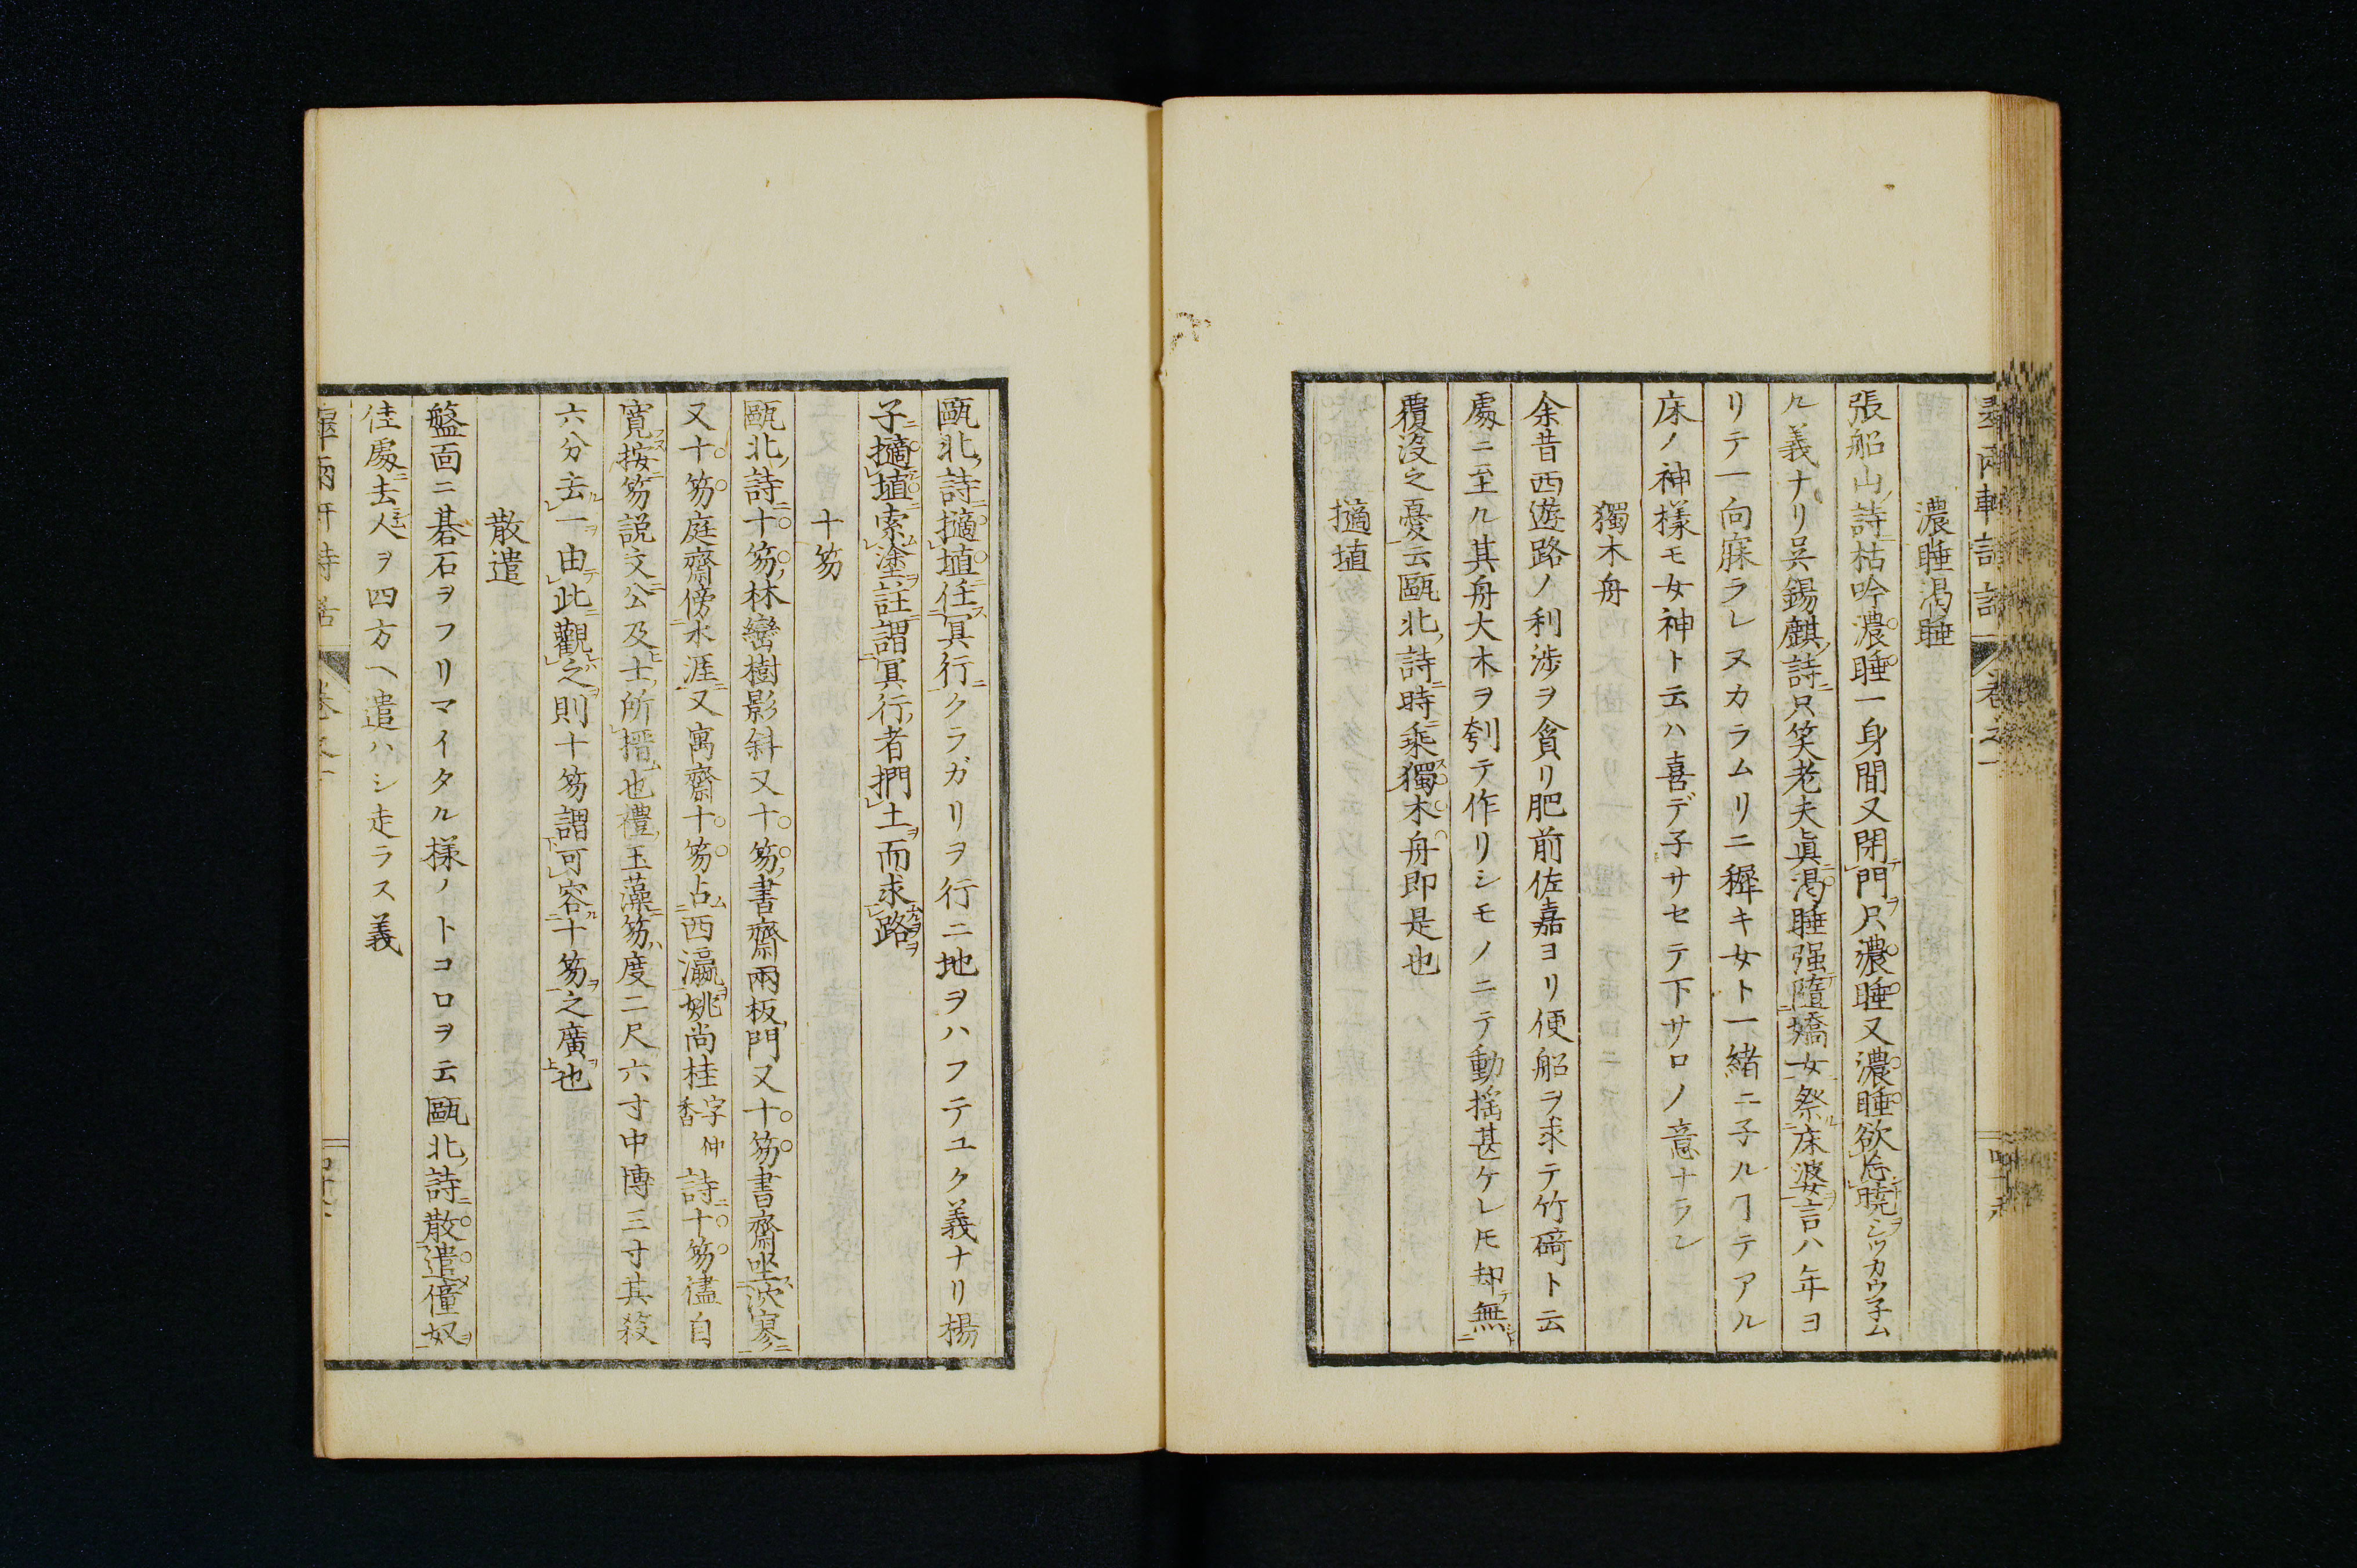 濃睡渇睡
張船山詩枯吟濃睡一身間又閉門只濃睡又濃睡欲忘曉シツカウ子ム
ル義ナリ呉錫麒詩只笑老夫眞渇睡强隨嬌女祭床婆言ハ年ヨ
リテ一向寐ラレヌカラムリニ穉キ女ト一緒ニ子ルヿテアル
床ノ神樣モ女神ト云ハ喜デ子サセテ下サロノ意ナラン
獨木舟
余昔西遊路ノ利渉ヲ貪リ肥前佐嘉ヨリ便船ヲ求テ竹碕ト云
處ニ至ル其舟大木ヲ刳テ作リシモノニテ動搖甚ケレ𪜈却無
覆沒之憂云甌北詩時乘獨木舟即是也
擿埴
甌北詩擿埴任冥行クラガリヲ行ニ地ヲハフテユク義ナリ楊
子擿埴索塗註謂冥行者捫土而求路
十笏
甌北詩十笏林巒樹影斜又十笏書齋兩板門又十笏書齋坐泬寥
又十笏庭齋傍水涯又寓齋十笏占西瀛姚尚桂字仲香詩十笏盧自
寛按笏説文公及士所搢也禮玉藻笏度二尺六寸中博三寸其殺
六分去一由此觀之則十笏謂可容十笏之廣也
散遣
盤面ニ碁石ヲフリマイタル樣ノトコロヲ云甌北詩散遣僮奴
佳處去人ヲ四方ヘ遣ハシ走ラス義